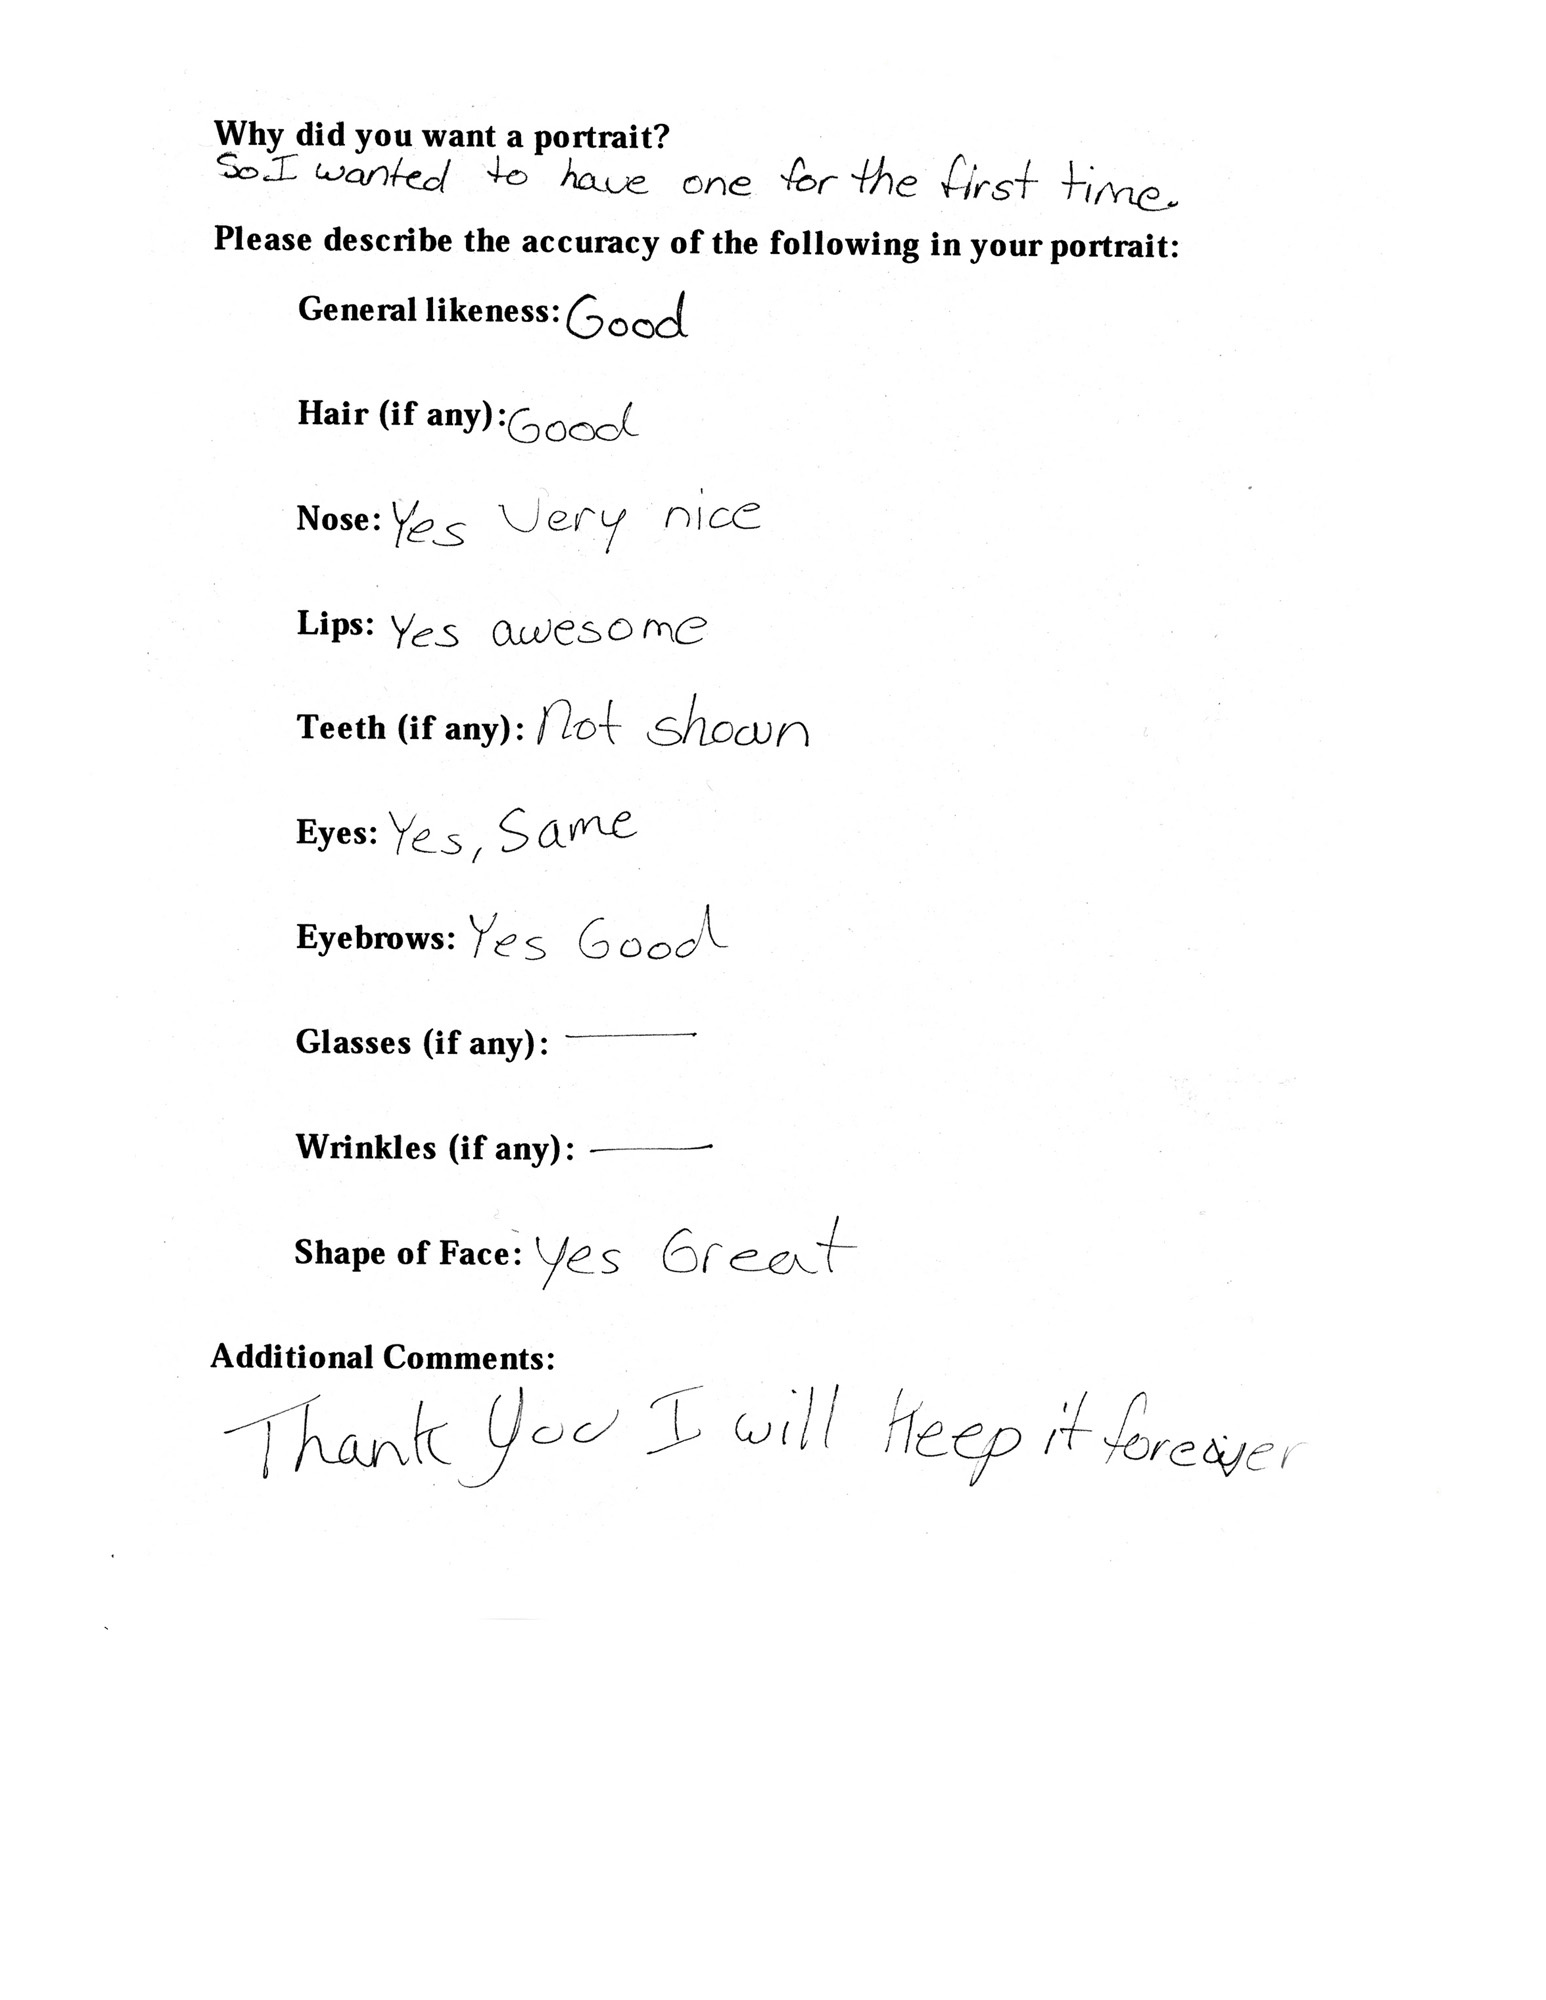 Why did you want a portrait?
So I wanted to have one for the first time.
Please describe the accuracy of the following in your portrait:
General likeness: Good
Hair (if any): Good
Nose: Yes Very nice
Lips: Yes awesome
Teeth (if any): Not shown
Eyes: Yes, Same
Eyebrows: Yes Good
Glasses (if any): —
Wrinkles (if any): —
Shape of Face: Yes Great
Additional Comments:
Thank you I will Keep it forever